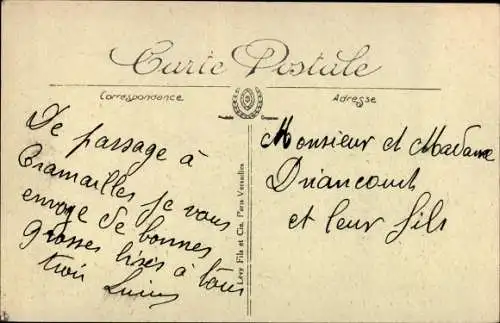 Carte Postale
Correspondance
Adresse
De passage à
je vous
envoye de bonnes
grosses bises à tous
trois
Lévy Fils et Cie, Paris-Versailles
Monsieur et Madame
et leur fils